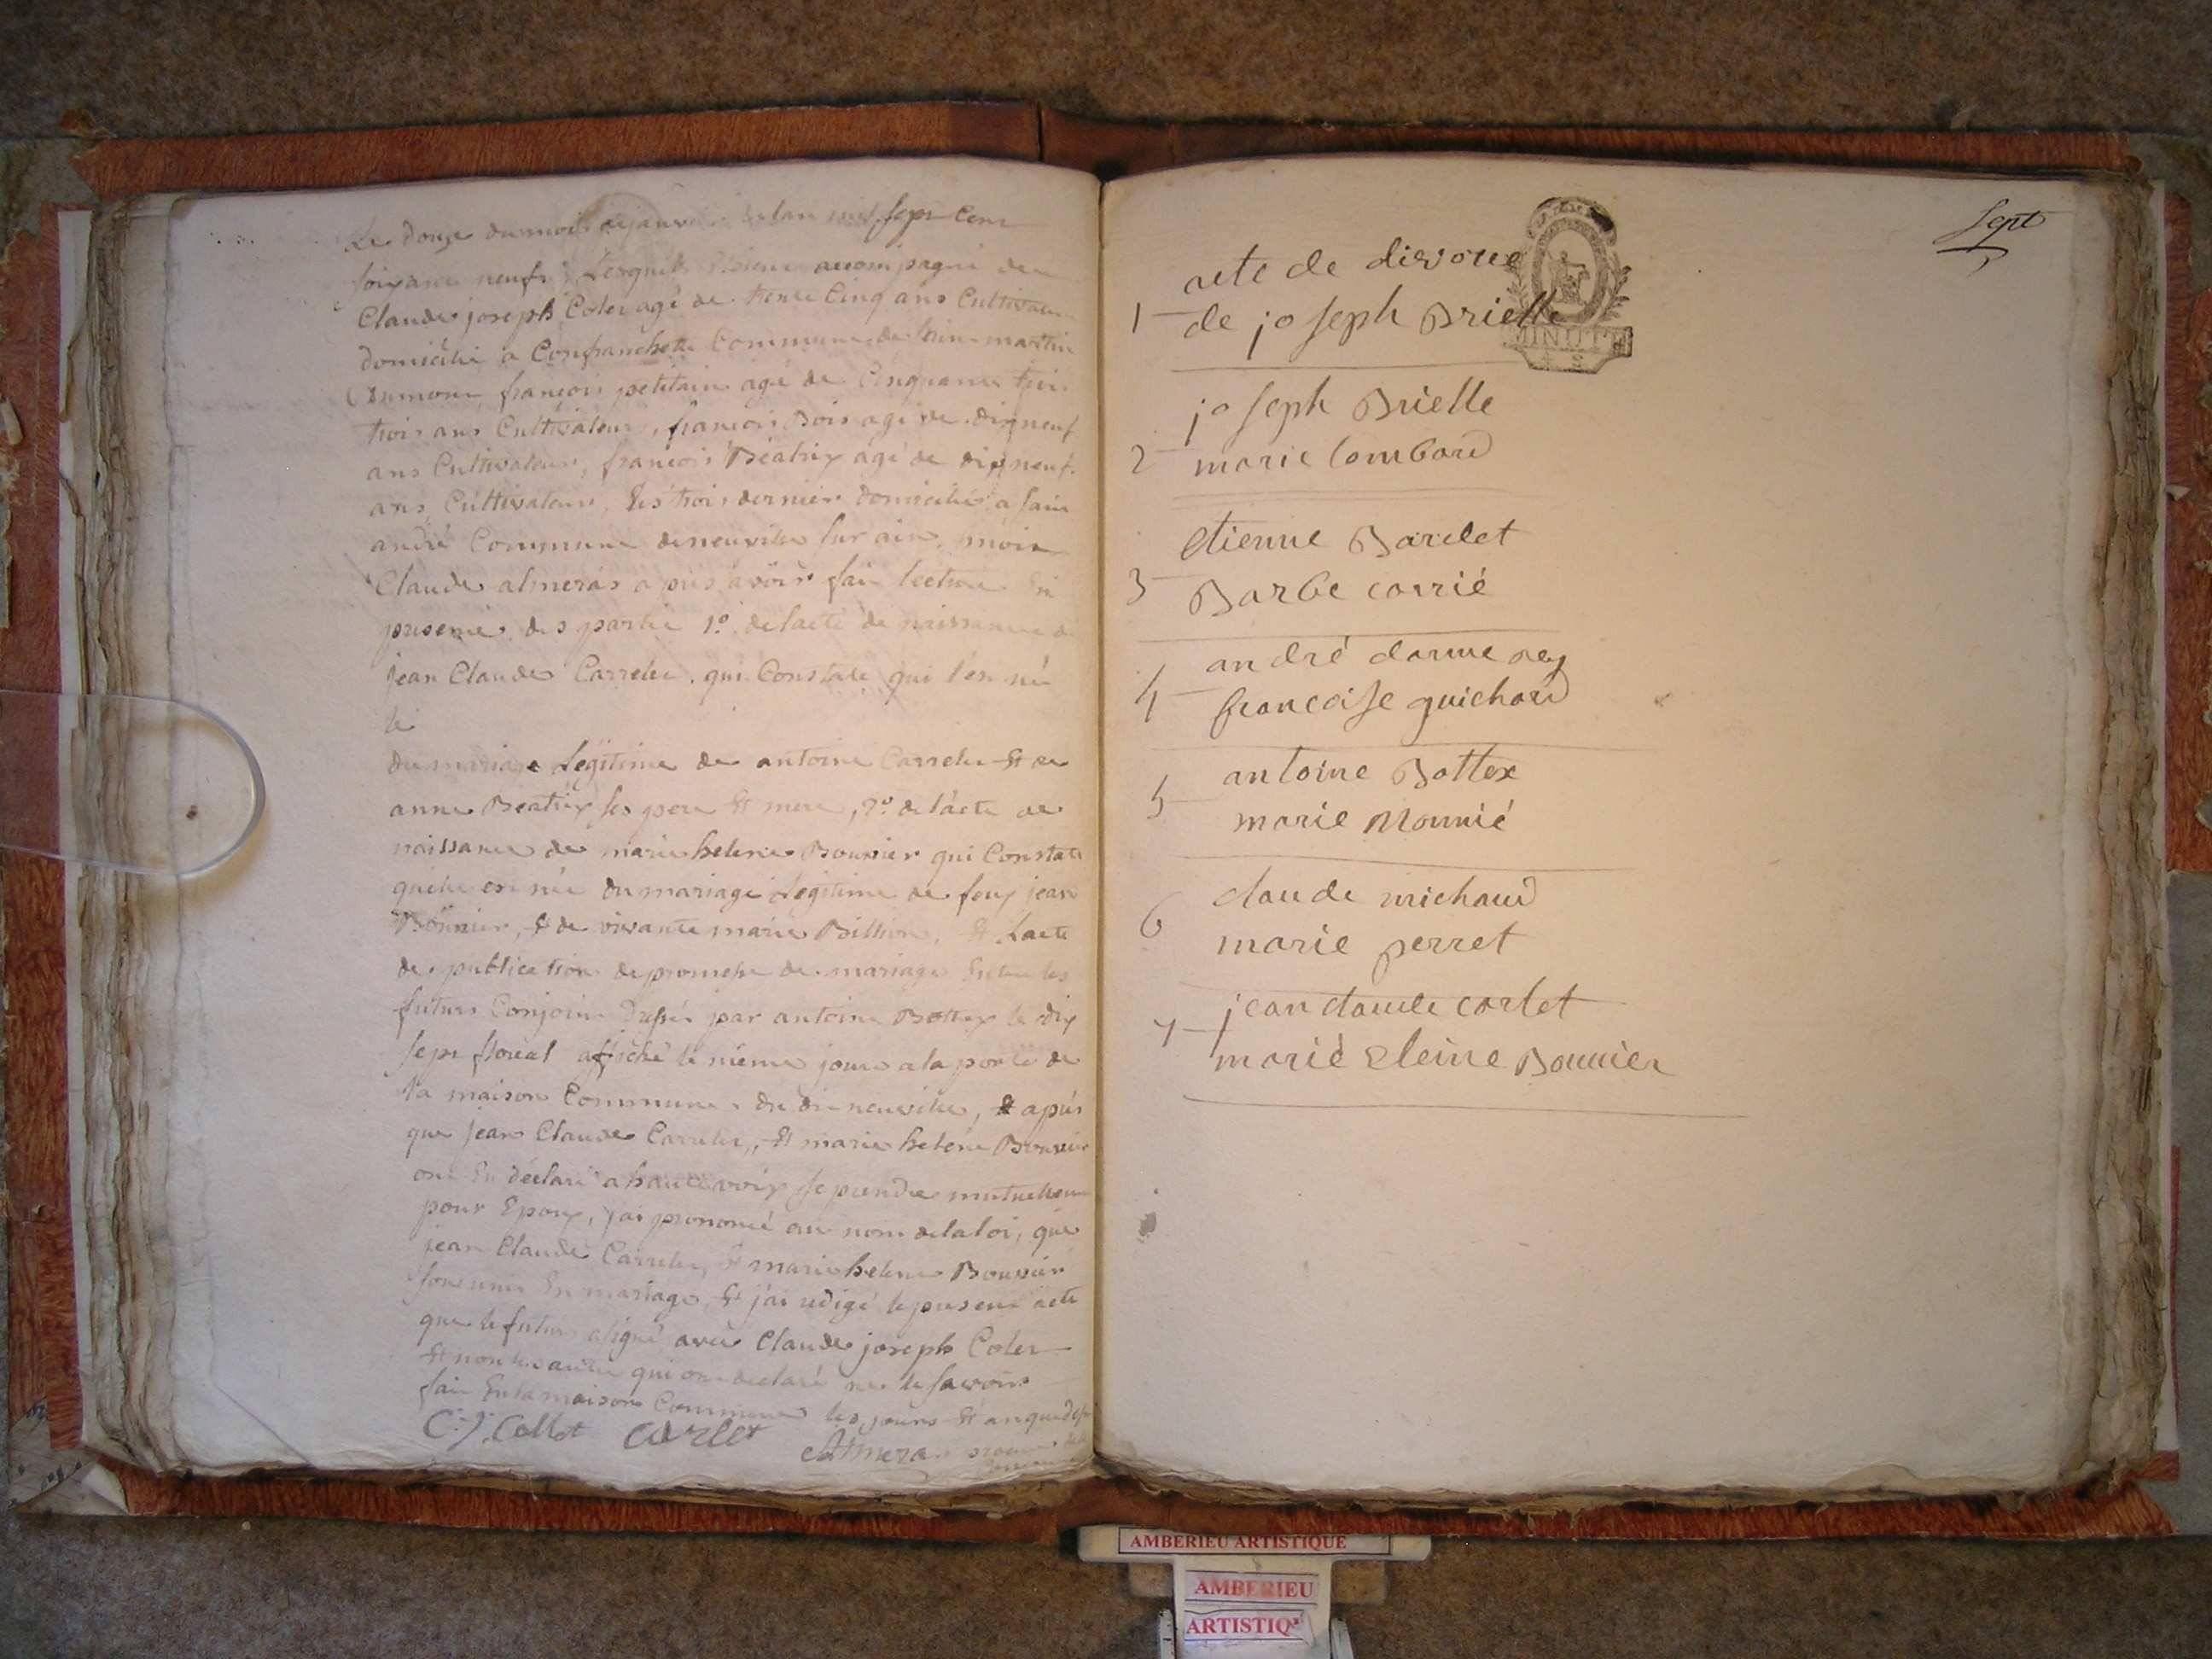 Le douze du mois de janvier de lan mil sept cent
soixante neufs, Lesquels étoient accompagné de
Claude joseph Colet agé de trente Cinq ans Cultivateur
domicilié a Confranchette Commune de Saint martin
françois petitain agé de Cinquante
trois ans Cultivateur, françois Bois agé de dix neuf
ans Cultivateur, françois Béatrix agé de dix neuf
ans Cultivateur, Les trois dernier domiciliés a sain
andré Commune de neuville sur ain, moi
Claude almeras apres avoir fait lecture En
presence des partie 1º de lacte de naissance de
jean Claude Carrelet qui Constate qui l'est né
le
du mariage Légitime de antoine Carrelet Et de
anne Béatrix ses pere Et mere, 2º de l'acte de
naissance de marie helene Bouvier qui Constate
quelle est née du mariage Légitime de feux jean
Bouvier, & de vivante marie Billion, Et Lacte
de publication de promesse de mariage Entre les
futurs Conjoint Dressés par antoine Bottex le dix
sept floreal affiché le même jour a la porte de
la maison Commune du dit neuville, & après
que jean Claude Carrelet, Et marie helene Bouvier
ont Eu déclaré a haute voix se prendre mutuellement
pour Epoux, j'ai prononcé au nom de la loi, que
jean Claude Carrelet, Et marie helene Bouvier
sont unis En mariage, Et j'ai redigé le present acte
que le futur a signé avec Claude joseph Colet
Et non les autre qui ont declaré ne le savoir
fait En la maison Commune les jours Et an que dessus
C. J. Collet Carlet
Almeras
Sept
acte de divorce
1 de joseph Brielle
MINUTE
joseph Brielle
2 marie lombard
etienne Barelet
3 Barbe carrié
andré darmerey
4 francoise guichard
antoine Bottex
5 marie Monnié
claude michaud
6 marie perret
jean claude carlet
7 marié eleine Bouvier
AMBERIEU ARTISTIQUE
AMBERIEU
ARTISTIQ